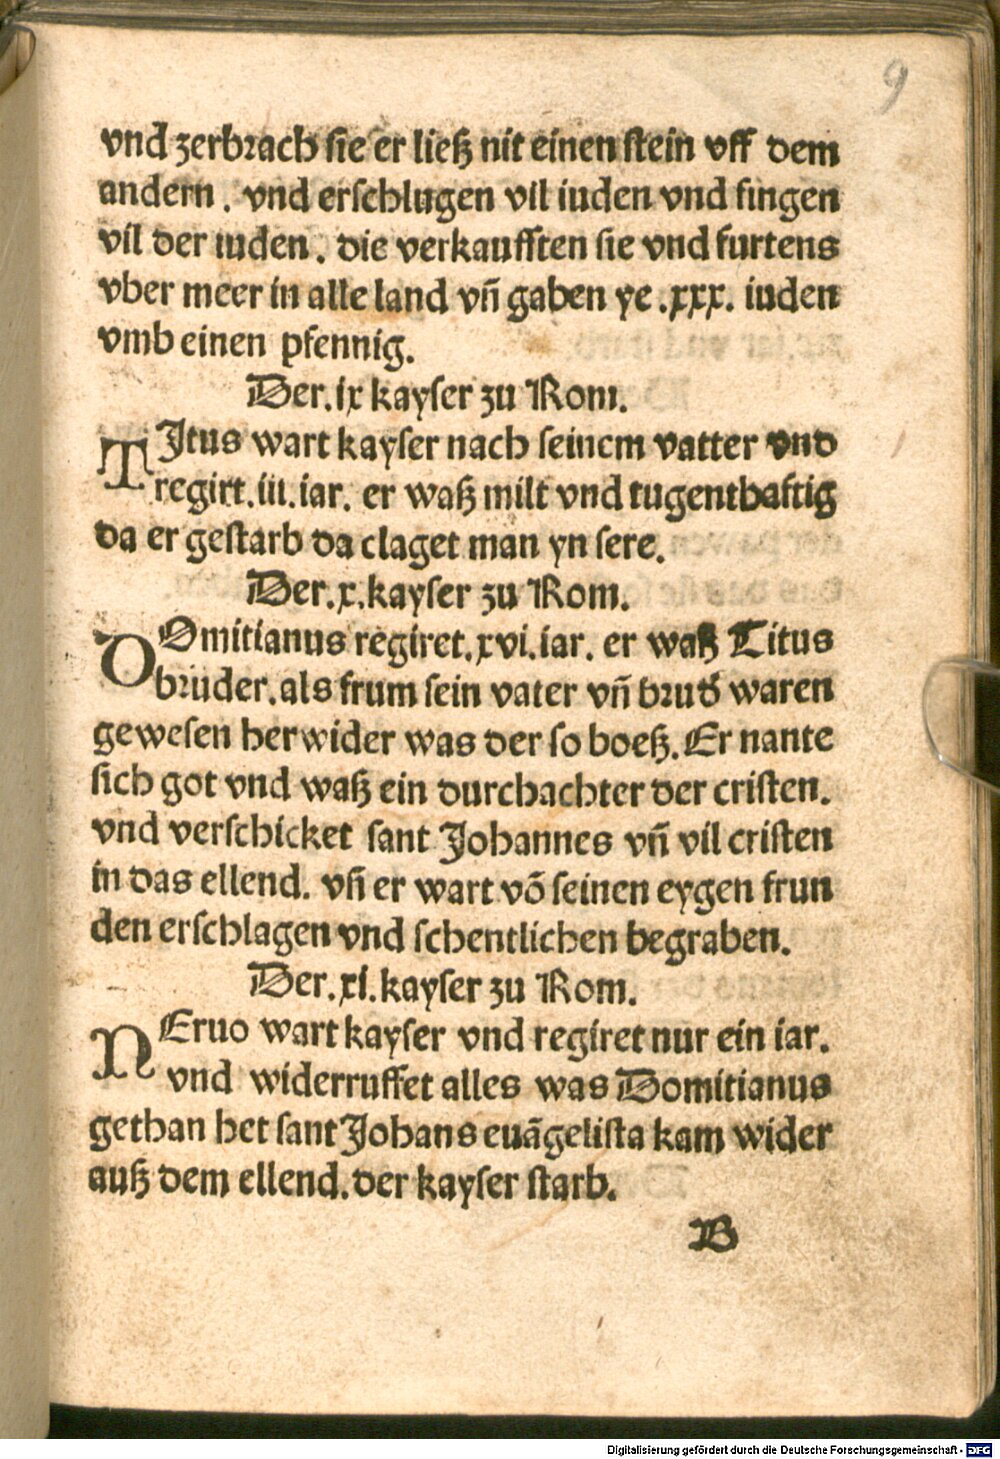 9
vnd zerbrach sie er ließ nit einen stein vff dem
andern. vnd erschlugen vil iuden vnd fingen
vil der iuden. die verkaufften sie vnd furtens
vber meer in alle land vñ gaben ye .xxx. iuden
vmb einen pfennig.
Der. ix kayser zu Rom.
TItus wart kayser nach seinem vatter vnd
regirt. iii. iar. er waß milt vnd tugenthafftig
da er gestarb da claget man yn sere.
Der. x. kayser zu Rom.
DOmitianus regiret. xvi. iar. er waß Titus
bruder. als frum sein vater vñ brud' waren
gewesen her wider was der so boeß. Er nante
sich got vnd waß ein durchachter der cristen.
vnd verschicket sant Johannes vñ vil cristen
in das ellend. vñ er wart võ seinen eygen frun
den erschlagen vnd schentlichen begraben.
Der. xi. kayser zu Rom.
NEruo wart kayser vnd regiret nur ein iar.
vnd widerruffet alles was Domitianus
gethan het sant Johans euãgelista kam wider
auß dem ellend. der kayser starb.
B
Digitalisierung gefördert durch die Deutsche Forschungsgemeinschaft - DFG